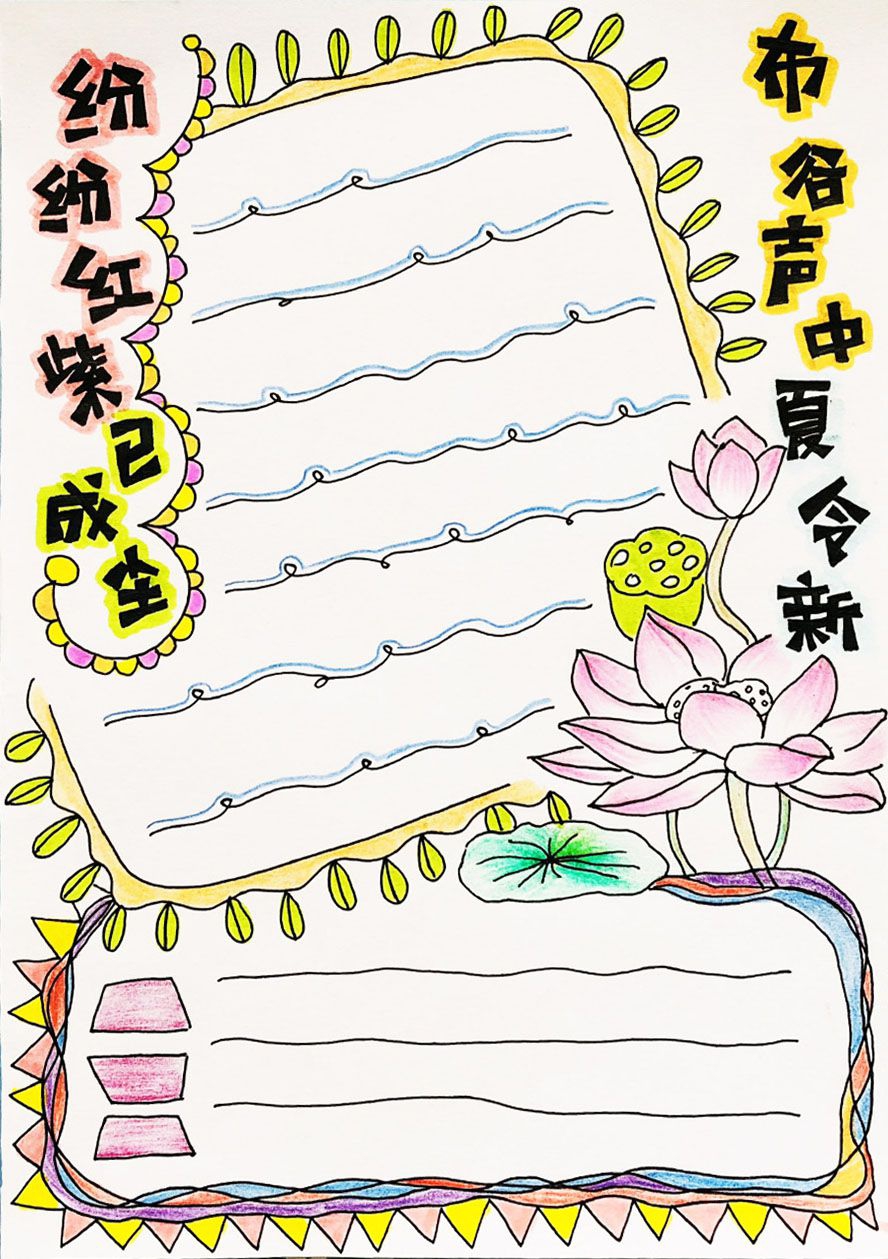 纷纷红紫已成尘
布谷声中夏令新